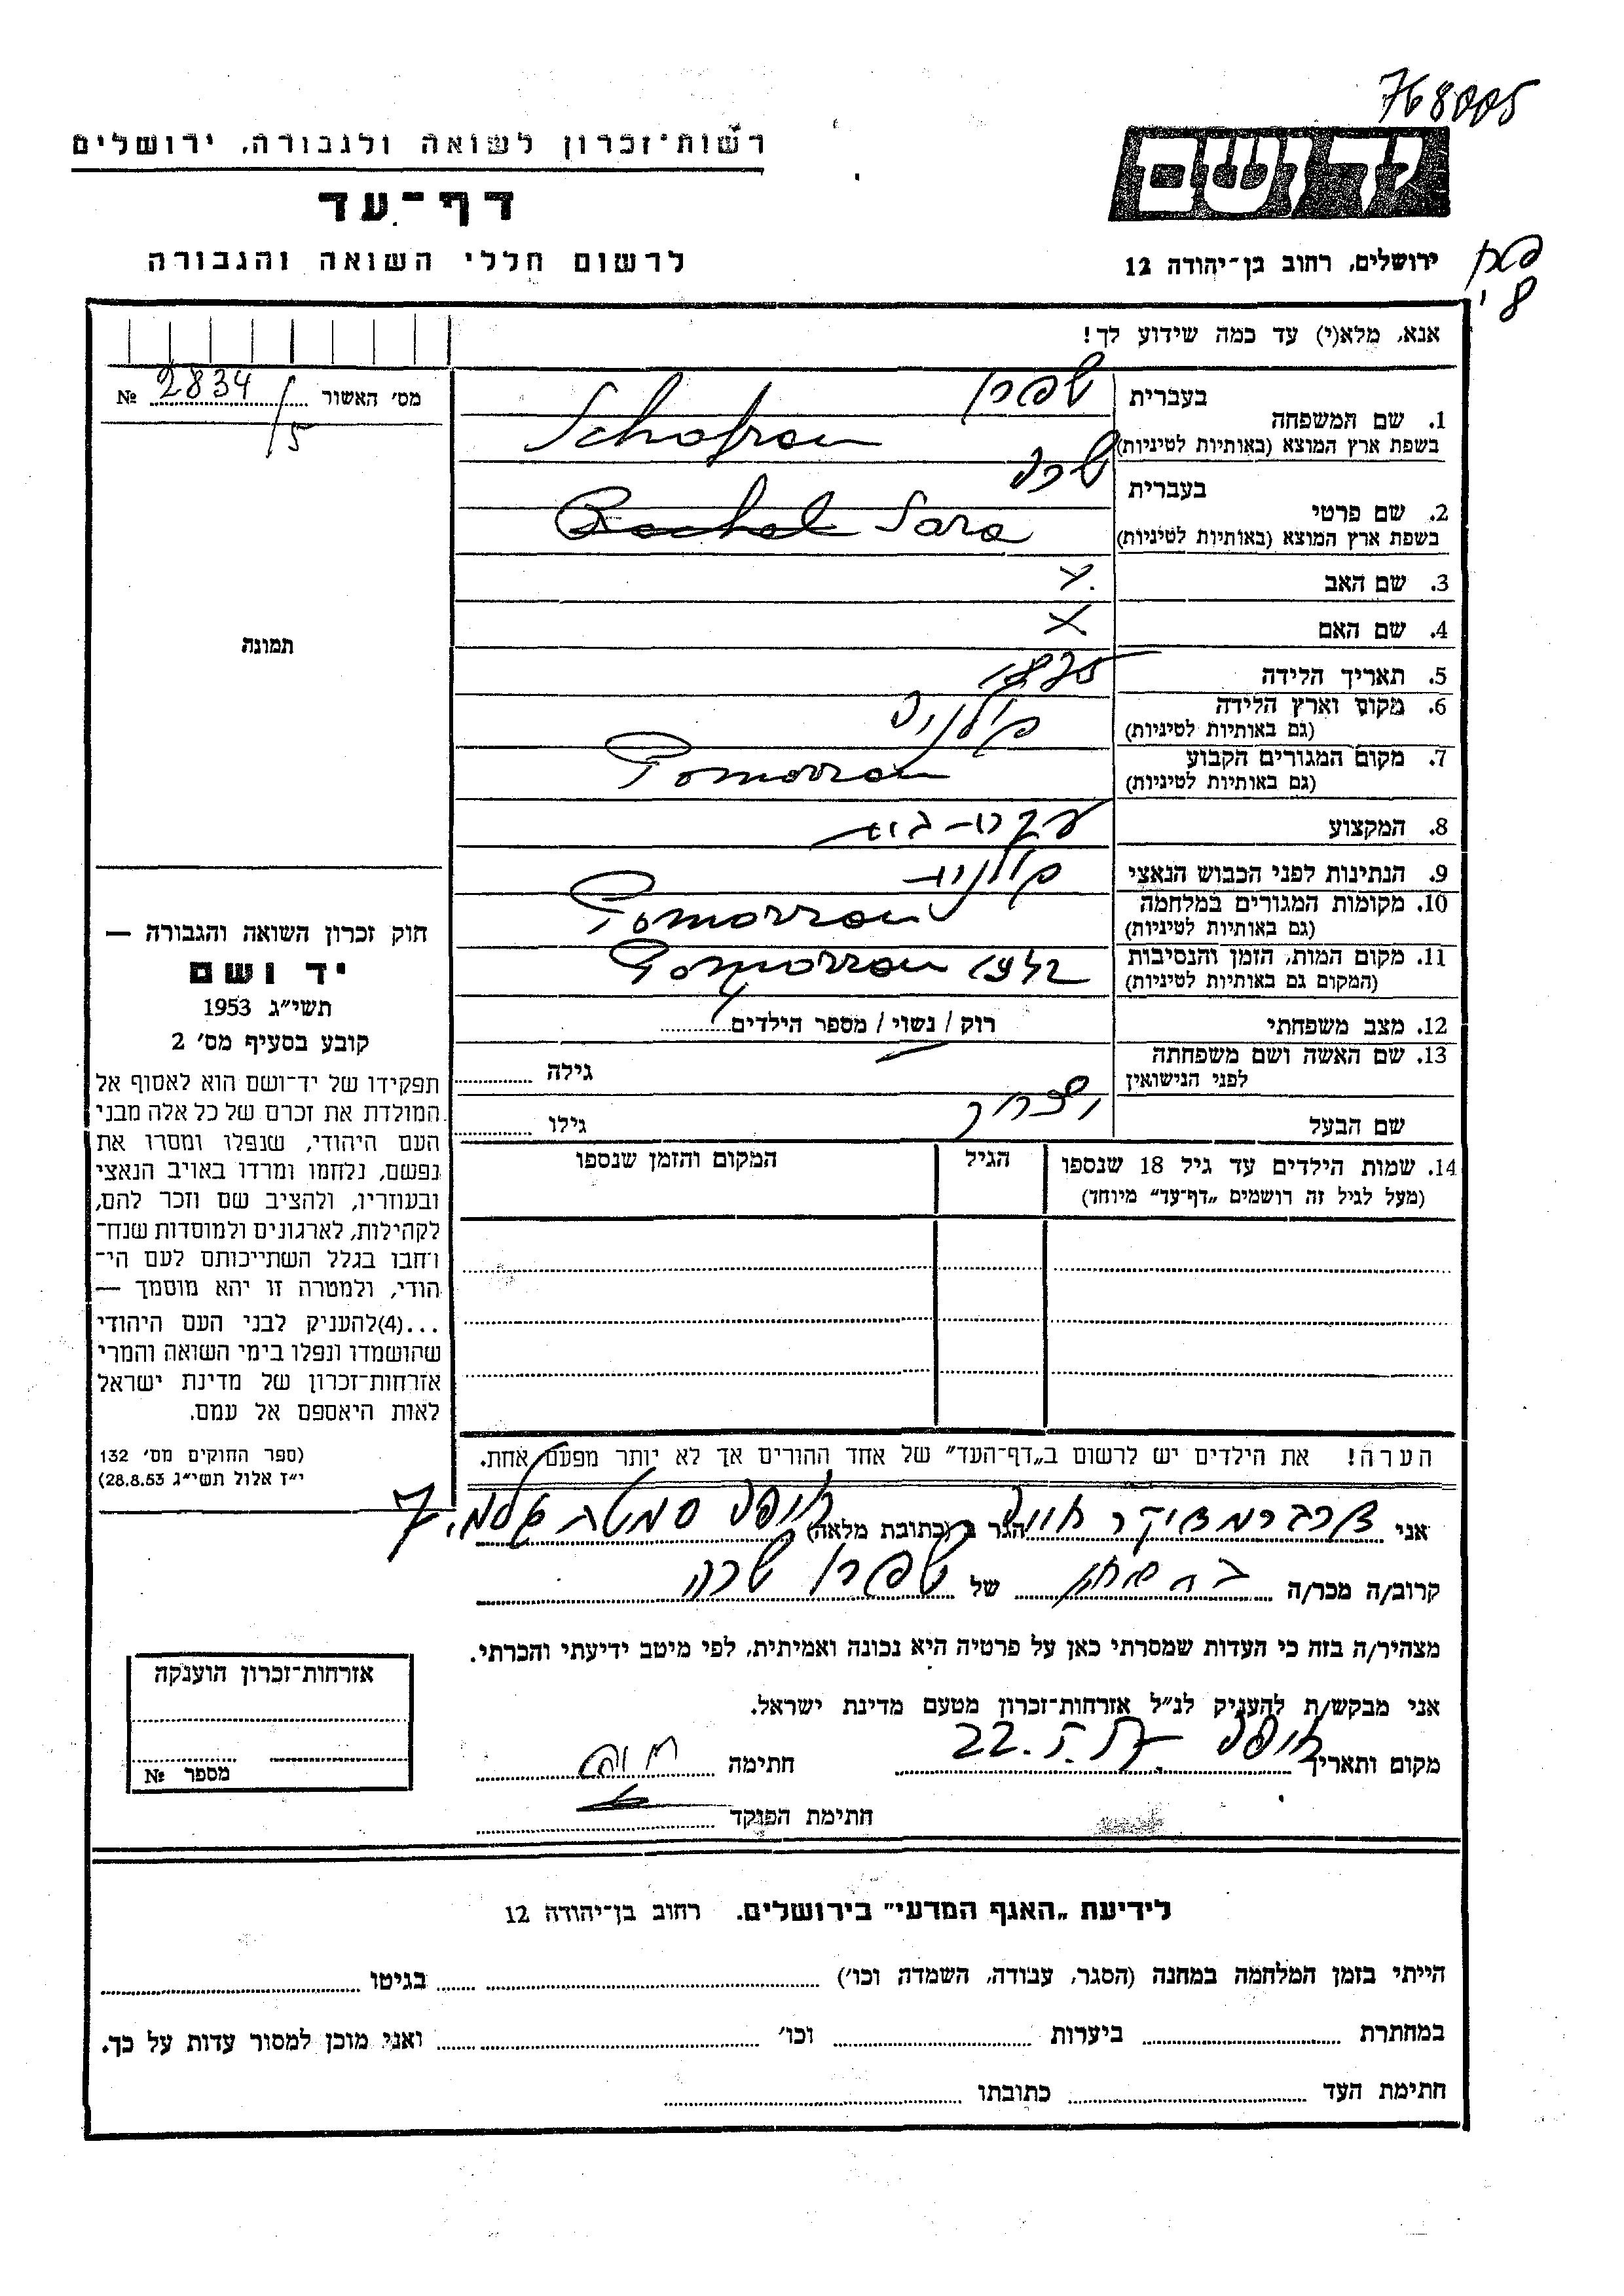 768005
רשות־זכרון לשואה ולגבורה, ירושלים
דף־עד
לרשום חללי השואה והגבורה
יד ושם
ירושלים, רחוב בן־יהודה 12
אנא, מלא(י) עד כמה שידוע לך!
מס׳ האשור 2834 №
/5
1. שם המשפחה בעברית שפרן
בשפת ארץ המוצא (באותיות לטיניות) Schofron
2. שם פרטי בעברית שרה
בשפת ארץ המוצא (באותיות לטיניות) Rachel Sara
3. שם האב X
4. שם האם X
תמונה
5. תאריך הלידה 1875
6. מקום וארץ הלידה פולניה
(גם באותיות לטיניות)
7. מקום המגורים הקבוע Pomorzon
(גם באותיות לטיניות)
8. המקצוע עקרת-בית
9. הנתינות לפני הכבוש הנאצי פולנית
10. מקומות המגורים במלחמה Pomorzon
(גם באותיות לטיניות)
11. מקום המות, הזמן והנסיבות Pomorzon 1942
(המקום גם באותיות לטיניות)
12. מצב משפחתי רוק / נשוי / מספר הילדים 4
13. שם האשה ושם משפחתה גילה
לפני הנישואין
שם הבעל גילו
14. שמות הילדים עד גיל 18 שנספו הגיל המקום והזמן שנספו
(מעל לגיל זה רושמים „דף־עד״ מיוחד)
הערה! את הילדים יש לרשום ב„דף־העד״ של אחד ההורים אך לא יותר מפעם אחת.
חוק זכרון השואה והגבורה —
יד ושם
תשי״ג 1953
קובע בסעיף מס׳ 2
תפקידו של יד־ושם הוא לאסוף אל
המולדת את זכרם של כל אלה מבני
העם היהודי, שנפלו ומסרו את
נפשם, נלחמו ומרדו באויב הנאצי
ובעוזריו, ולהציב שם וזכר להם,
לקהילות, לארגונים ולמוסדות שנח־
רחבו בגלל השתייכותם לעם הי־
הודי, ולמטרה זו יהא מוסמך —
...(4)להעניק לבני העם היהודי
שהושמדו ונפלו בימי השואה והמרי
אזרחות־זכרון של מדינת ישראל
לאות היאספם אל עמם.
(ספר החוקים מס׳ 132
י״ז אלול תשי״ג 28.8.53)
אני חיה הגר ב (כתובת מלאה) חיפה
קרוב/ה מכר/ה של שפרן שרה
מצהיר/ה בזה כי העדות שמסרתי כאן על פרטיה היא נכונה ואמיתית, לפי מיטב ידיעתי והכרתי.
אני מבקש/ת להעניק לנ״ל אזרחות־זכרון מטעם מדינת ישראל.
מקום ותאריך חיפה 22.5.57 חתימה
חתימת הפוקד
אזרחות־זכרון הוענקה
מספר №
לידיעת „האגף המדעי״ בירושלים. רחוב בן־יהודה 12
הייתי בזמן המלחמה במחנה (הסגר, עבודה, השמדה וכו׳) בגיטו
במחתרת ביערות וכו׳ ואני מוכן למסור עדות על כך.
חתימת העד כתובתו